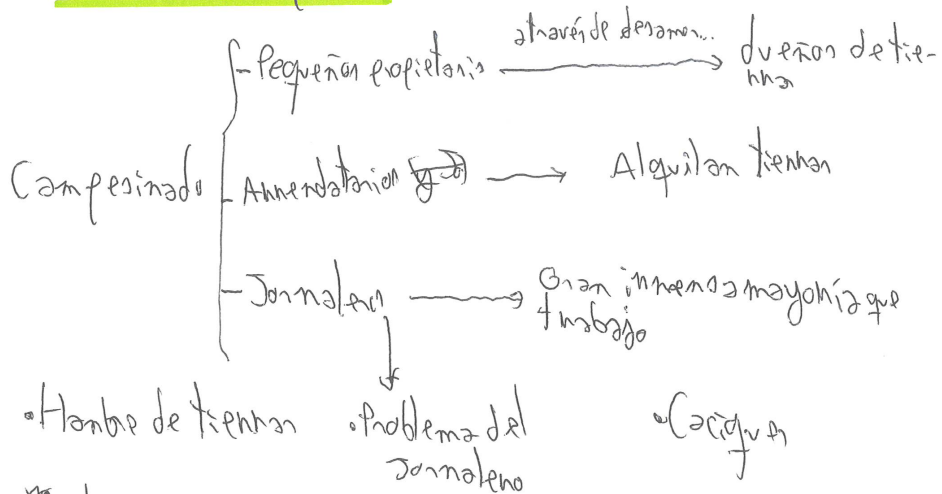 - Pequeños propietaris
através de desamor...
dueños de tie-
rra
Campesinado
- Arrendatarios
Alquilan tierras
- Jornalero
Gran inmensa mayoría que
trabajo
• Hambre de tierras
• Problema del
Jornalero
• Caciques